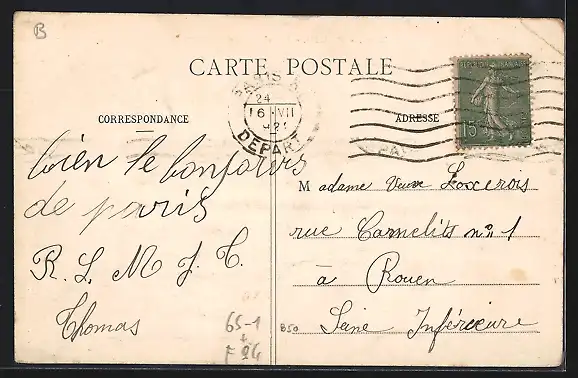 B
CARTE POSTALE
PARIS
24
16 VII
DEPART
REPUBLIQUE FRANÇAISE
15c
CORRESPONDANCE
ADRESSE
bien le bonjours
de paris
R. L. M J. C.
Thomas
65-1
+
F 24
850
Madame Veuve Loxerois
rue Carmelits no 1
à Rouen
Seine Inférieure